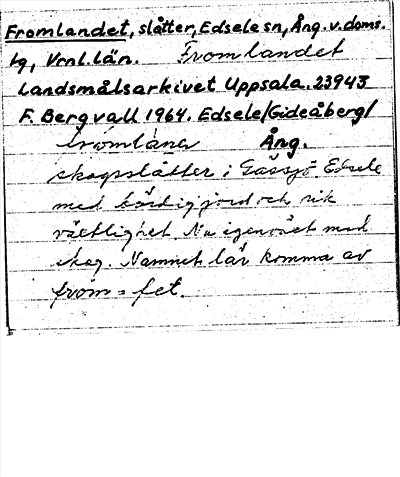 Fromlandet, slåtter, Edsele sn, Ång. v. doms.
tg, Vrnl. län. Fromlandet
Landsmålsarkivet Uppsala. 23943
F. Bergvall 1964. Edsele/Gideåberg/
Ång.
skogsslåtter i Gåssjö Edsele
med bördig jord och rik
växtlighet. Nu igenväxt med
skog. Namnet lär komma av
from = fet.